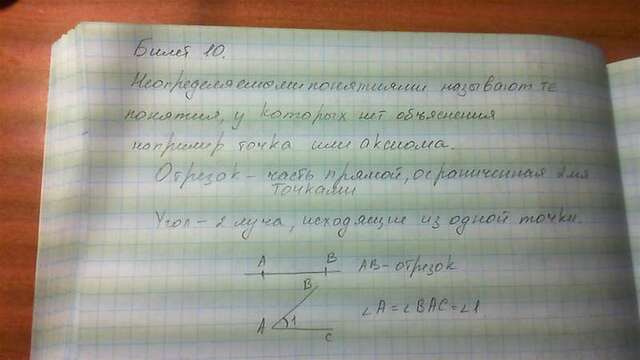 Билет 10.
Неопределяемыми понятиями называют те
понятия, у которых нет объяснения
например точка или аксиома.
Отрезок – часть прямой, ограниченная 2мя
точками
Угол – 2 луча, исходящие из одной точки.
A B AB – отрезок
B
∠A = ∠BAC = ∠1
A 1 C